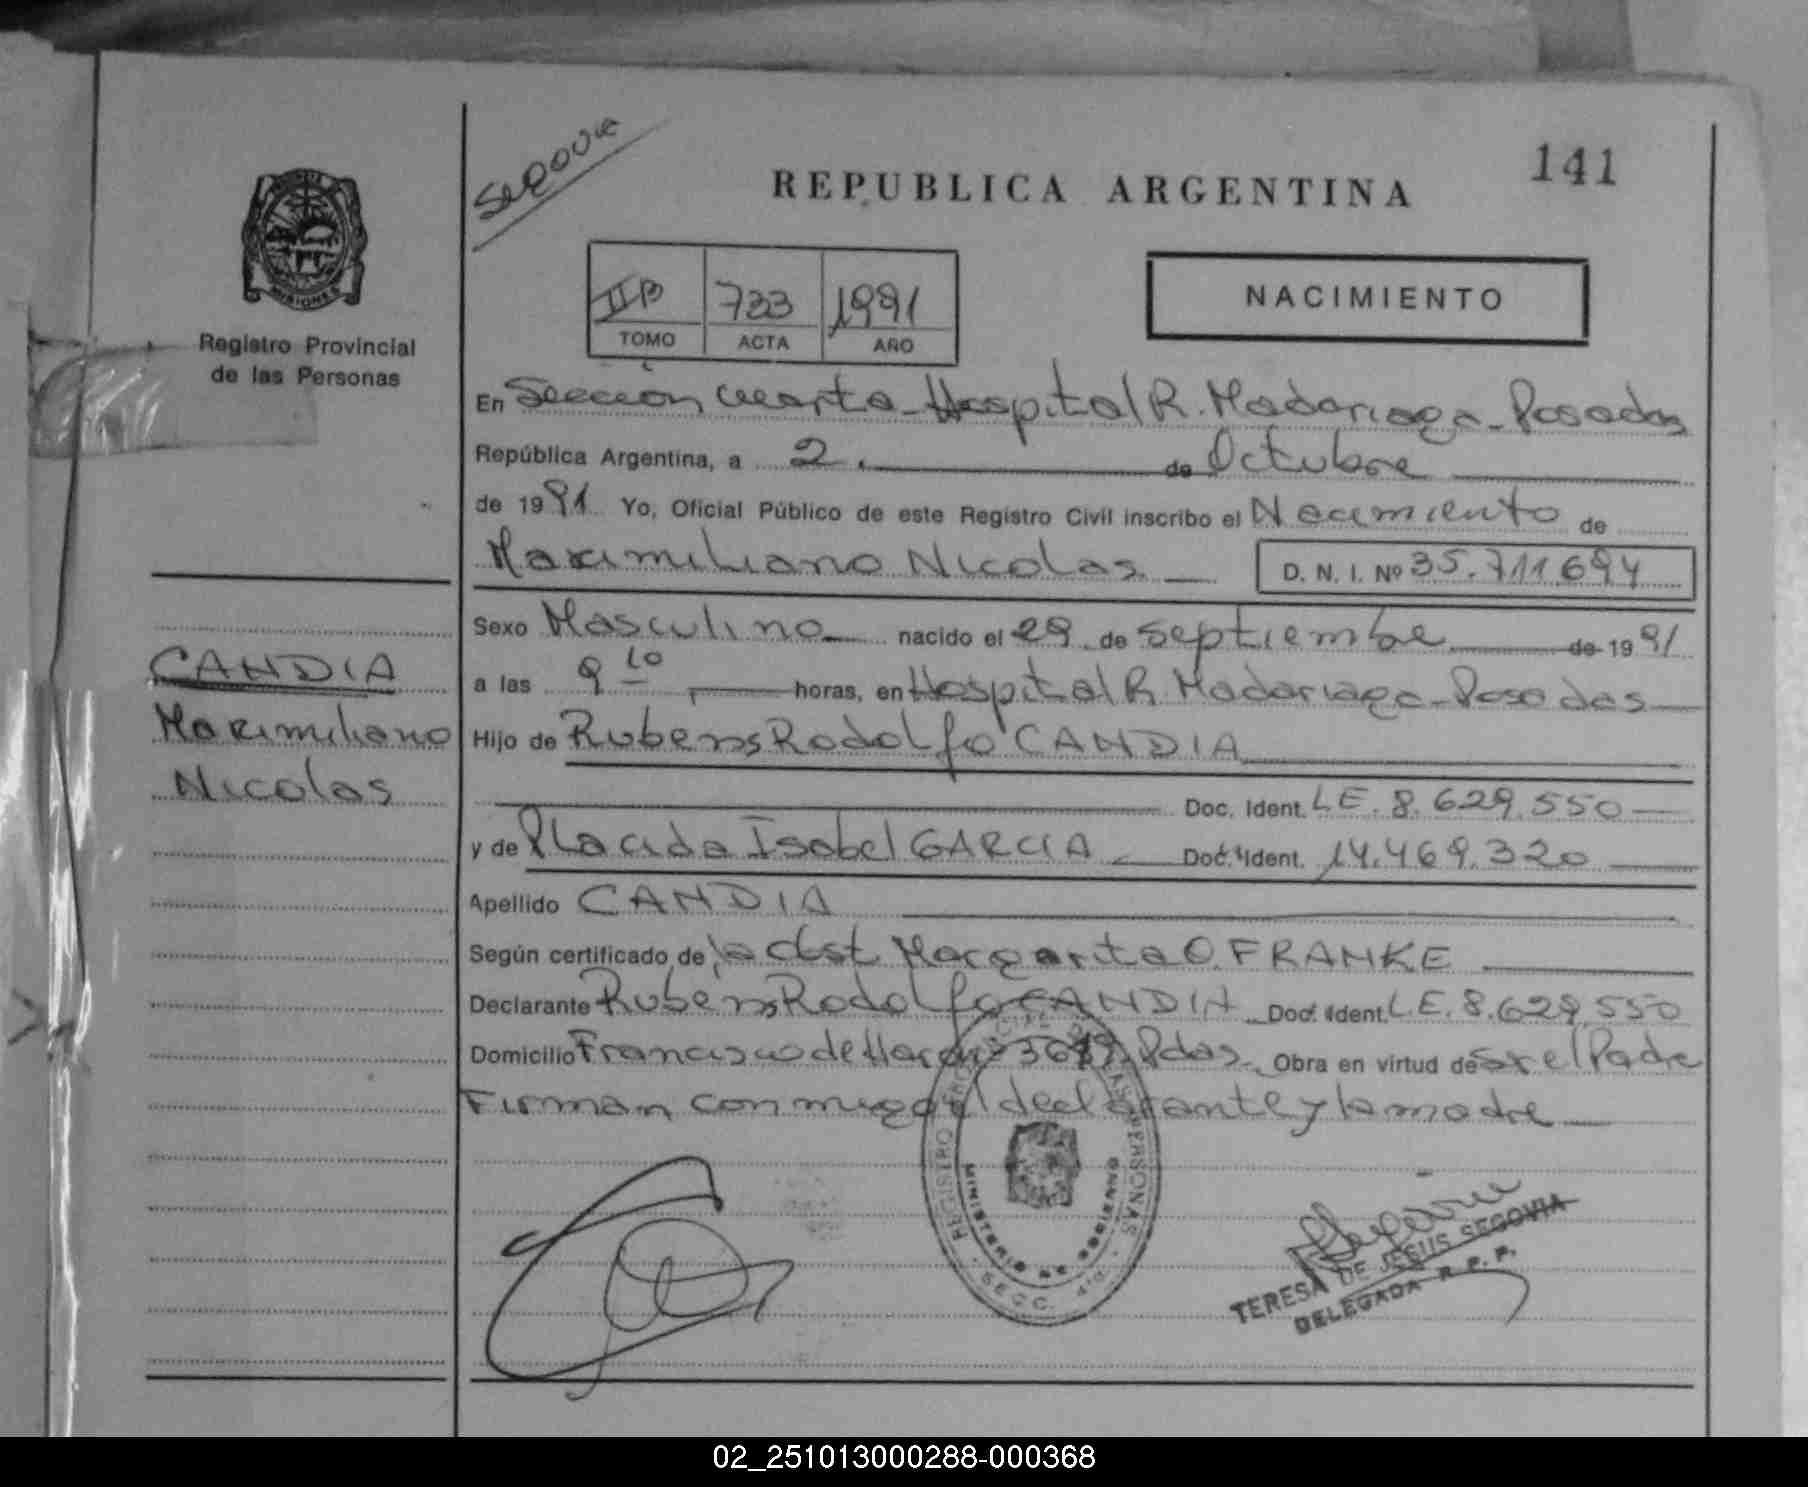 Segovia
REPUBLICA ARGENTINA
141
MISIONES
Registro Provincial
de las Personas
IIB 733 1991
TOMO ACTA AÑO
NACIMIENTO
En Sección cuarta - Hospital R. Madariaga - Posadas
República Argentina, a 2. de Octubre
de 1991 Yo, Oficial Público de este Registro Civil inscribo el Nacimiento de
Maximiliano Nicolas D. N. I. Nº 35.711.694
Sexo Masculino nacido el 29 de Septiembre de 1991
a las 9 10 horas, en Hospital R. Madariaga - Posadas
Hijo de Rubens Rodolfo CANDIA
Doc. Ident. LE. 8.629.550
y de Placida Isabel GARCIA Doc. Ident. 14.469.320
Apellido CANDIA
Según certificado de la obst Margarita O. FRANKE
Declarante Rubens Rodolfo CANDIA Doc. Ident. L.E. 8.629.550
Domicilio Francisco de Haro Pdas. Obra en virtud de Ser el Padre
Firman conmigo el declarante y la madre
CANDIA
Maximiliano
Nicolas
REGISTRO PROVINCIAL DE LAS PERSONAS
MINISTERIO DE GOBIERNO
SECC. 4ta.
TERESA DE JESUS SEGOVIA
DELEGADA R. P. P.
02_251013000288-000368